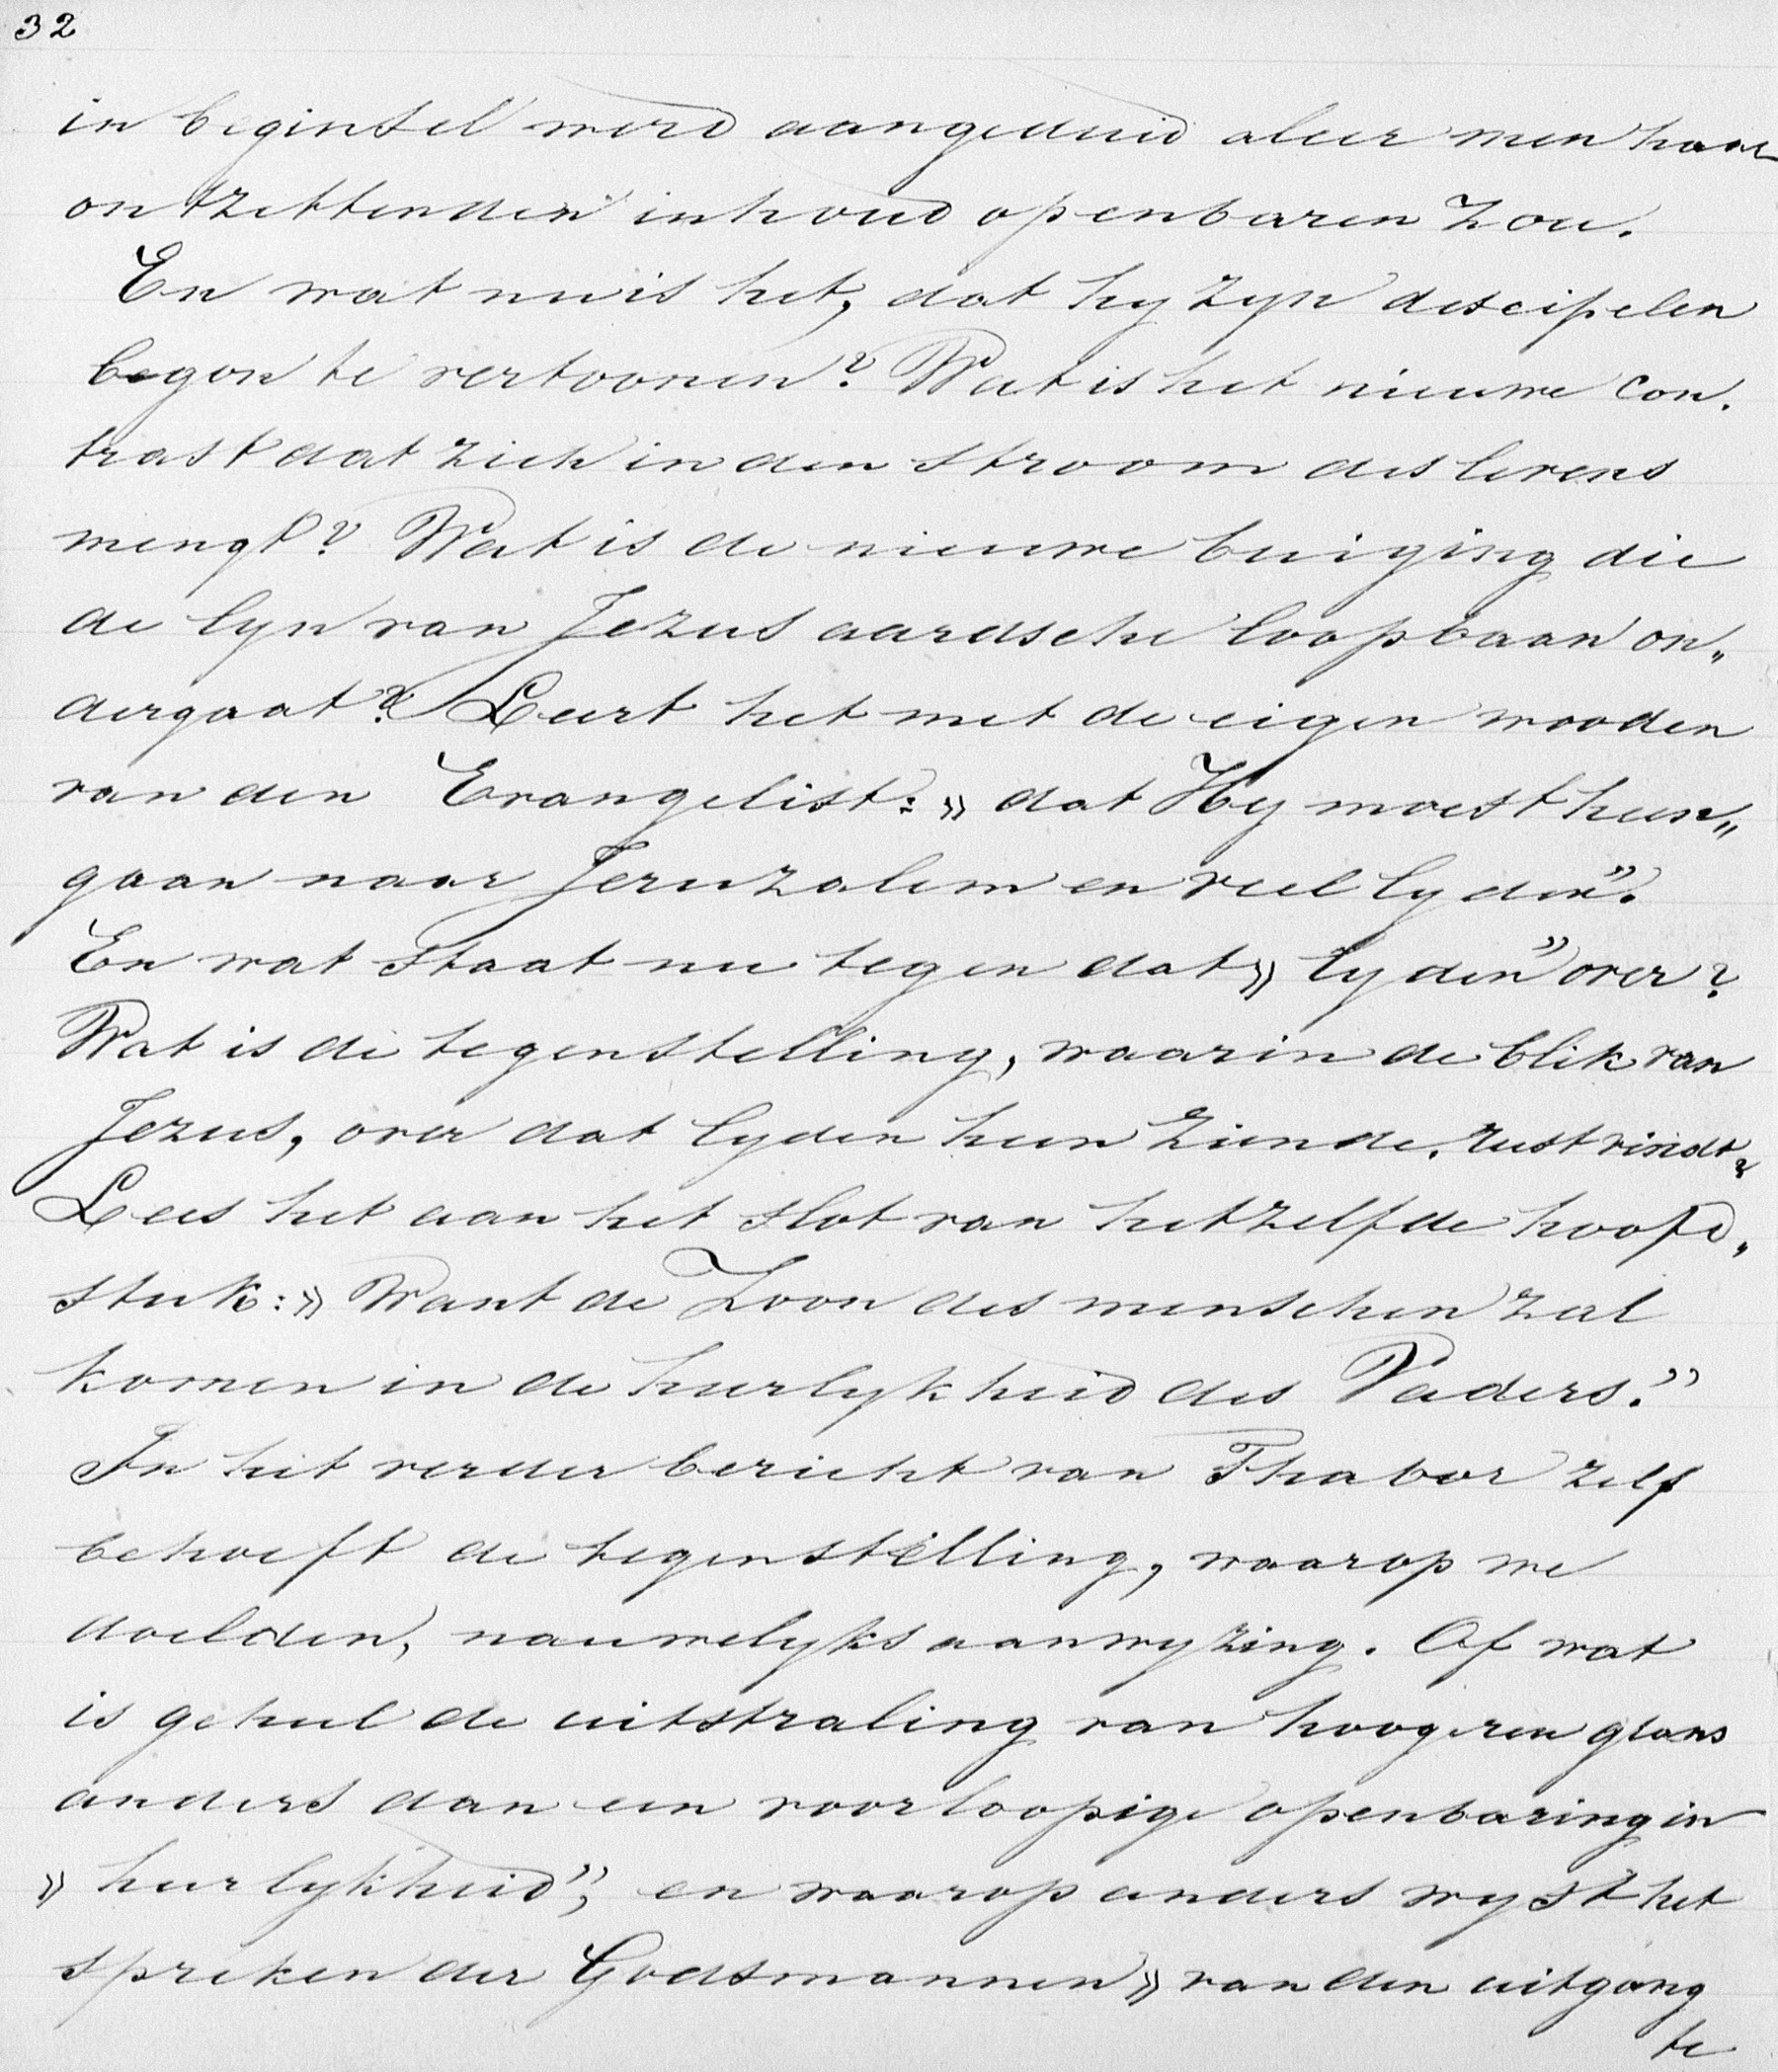 32
in beginsel werd aangeduid aleer men haar
ontzettenden inhoud openbaren zou.
En wat nu is het, dat hy zyn discipelen
begon te vertoonen? Wat is het nieuwe con„
trast dat zich in den stroom des levens
mengt? Wat is de nieuwe buiging die
de lyn van Jezus aardsche loopbaan on„
dergaat? Leert het met de eigen wooden
van den Evangelist: » dat Hy moest heen„
gaan naar Jeruzalem en veel lyden”.
En wat staat nu tegen dat » lyden” over?
Wat is de tegenstelling, waarin de blik van
Jezus, over dat lyden heen ziende, rust vindt?
Lees het aan het slot van hetzelfde hoofd„
stuk: » Want de Zoon des menschen zal
komen in de heerlykheid des Vaders.”
In het verder bericht van Thabor zelf
behoeft de tegenstelling, waarop we
doelden, nauwelyks aanwyzing. Of wat
is geheel de uitstraling van hoogeren glans
anders dan een voorloopige openbaring in
» heerlykheid”, en waarop anders wyst het
spreken der Godsmannen » van den uitgang
te